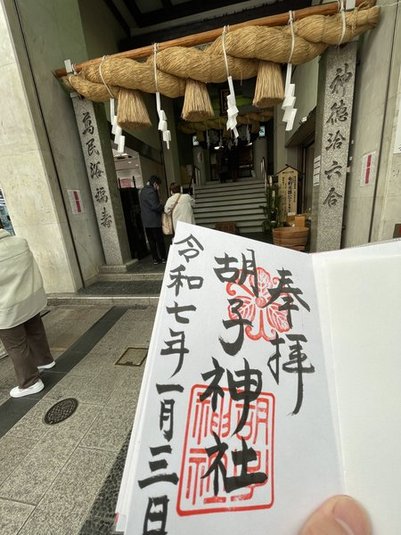 神徳洽六合
萬民浴福壽
奉拝
胡子神社
令和七年一月三日
胡子神社